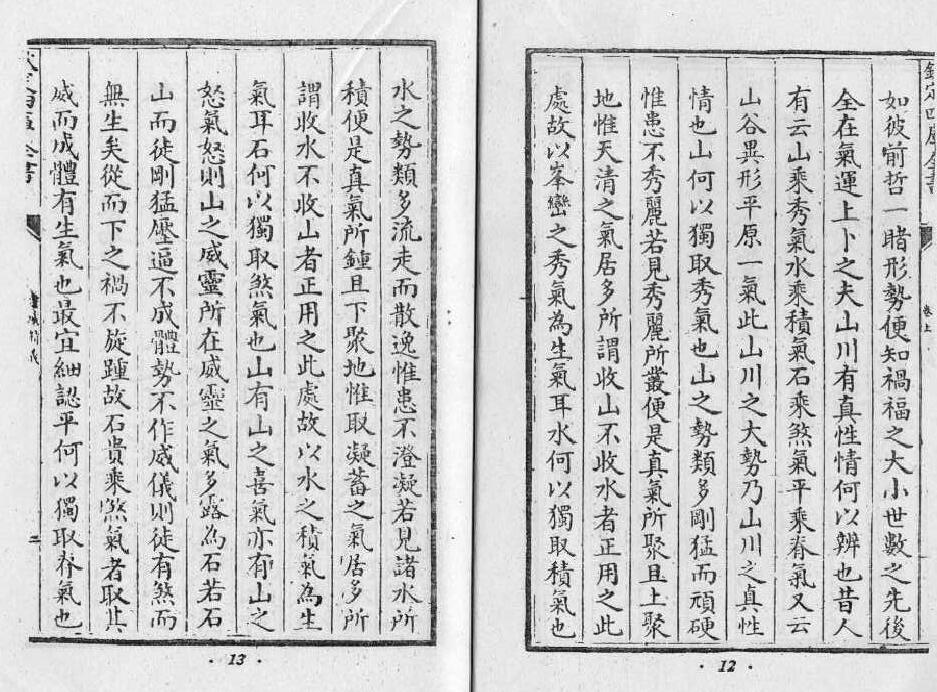 欽定四庫全書
卷上
如彼前哲一睹形勢便知禍福之大小世數之先後
全在氣運上卜之夫山川有真性情何以辨也昔人
有云山乘秀氣水乘積氣石乘煞氣平乘脊氣又云
山谷異形平原一氣此山川之大勢乃山川之真性
情也山何以獨取秀氣也山之勢類多剛猛而頑硬
惟患不秀麗若見秀麗所叢便是真氣所聚且上聚
地惟天清之氣居多所謂收山不收水者正用之此
處故以峯巒之秀氣為生氣耳水何以獨取積氣也
· 12 ·
水之勢類多流走而散逸惟患不澄凝若見諸水所
積便是真氣所鍾且下聚地惟取凝蓄之氣居多所
謂收水不收山者正用之此處故以水之積氣為生
氣耳石何以獨取煞氣也山有山之喜氣亦有山之
怒氣怒則山之威靈所在威靈之氣多露為石若石
山而徒剛猛壓逼不成體勢不作威儀則徒有煞而
無生矣從而下之禍不旋踵故石貴乘煞氣者取其
威而成體有生氣也最宜細認平何以獨取脊氣也
二
· 13 ·